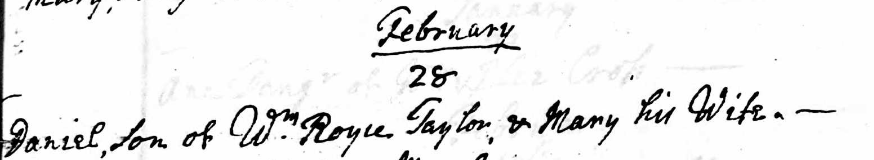 February
28
Daniel, Son of Wm Royce Taylor, & Mary his Wife. —